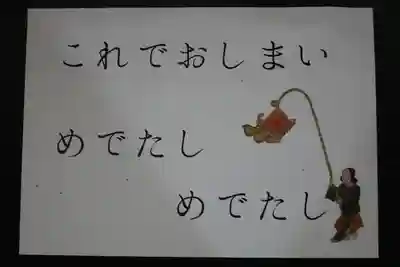 これでおしまい
めでたし
めでたし